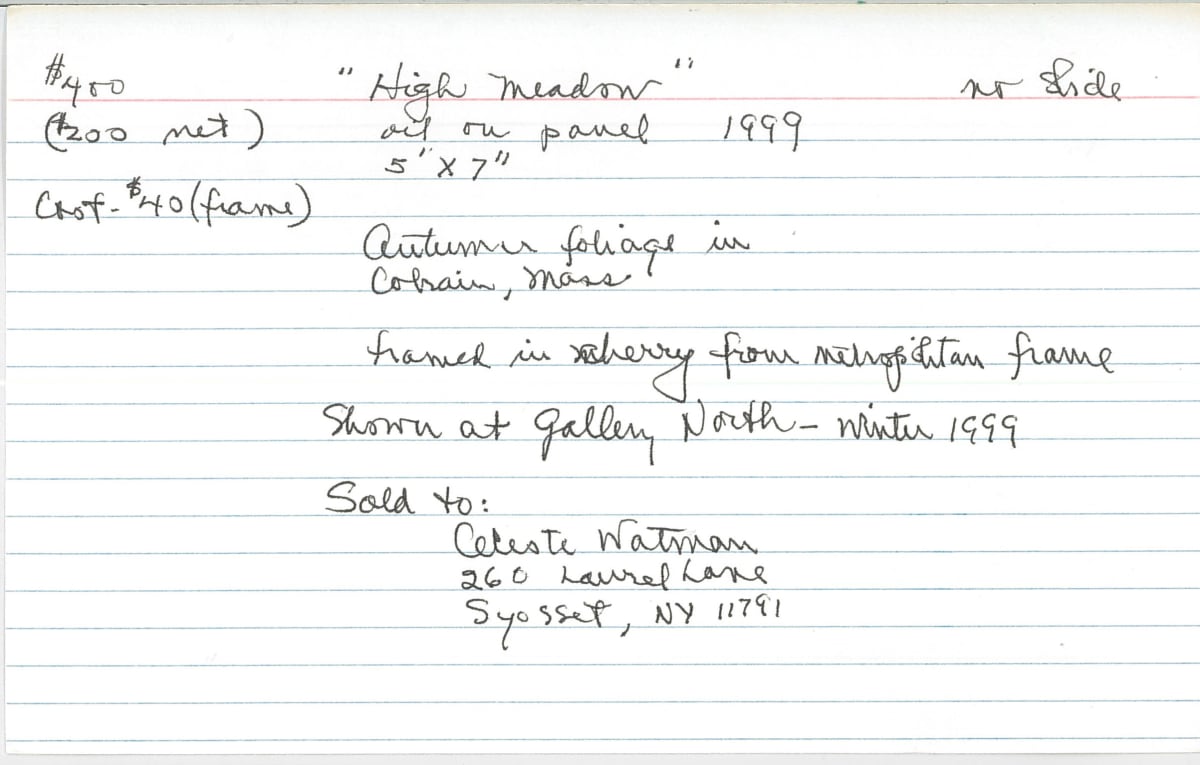 $400 "High Meadow" no slide
($200 net) oil on panel 1999
5" X 7"
Cost - $40 (frame)
Autumn foliage in
Colrain, Mass
framed in cherry from metropolitan frame
Shown at Gallery North - Winter 1999
Sold to:
Celeste Watman
260 Laurel Lane
Syosset, NY 11791